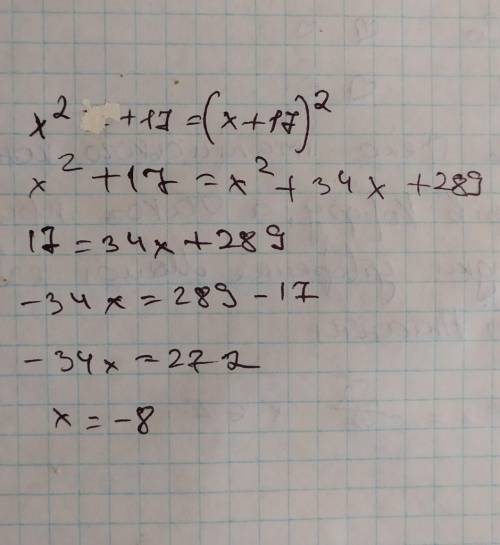 x² +17 = (x+17)²
x² +17 = x² + 34x + 289
17 = 34x + 289
-34x = 289 - 17
-34x = 272
x = -8